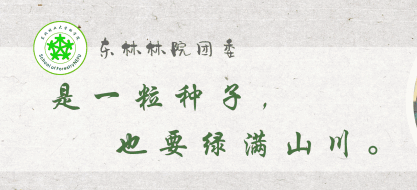 东林林院团委
是一粒种子，
也要绿满山川。